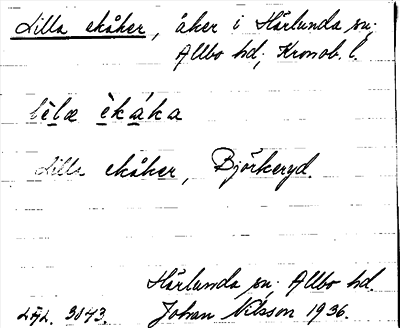 Lilla ekåker, åker i Härlunda sn;
Allbo hd; Kronob. l.
lèlæ èkáka
Lilla ekåker, Björkeryd.
Härlunda sn; Allbo hd.
3043. Johan Nilsson 1936.